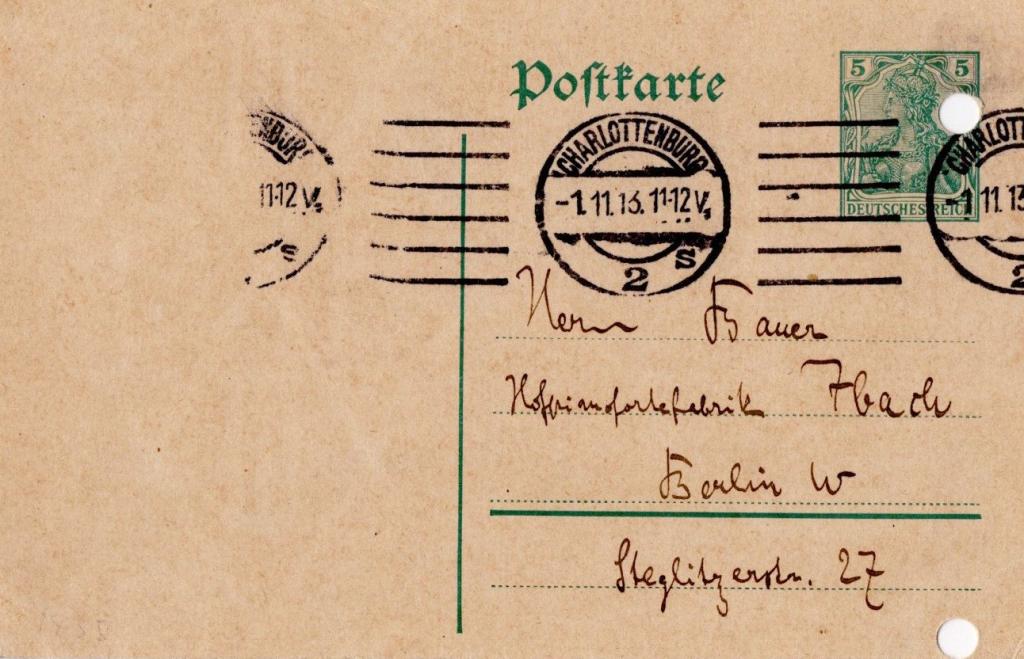 Postkarte
5 5
DEUTSCHES REICH
CHARLOTTENBURG
-1.11.13. 11-12 V.
2 s
ENBUR
11-12 V.
s
CHARLOTT
-1 11.13
2
Herrn Bauer
Hofpianofortefabrik Ibach
Berlin W
Steglitzerstr. 27